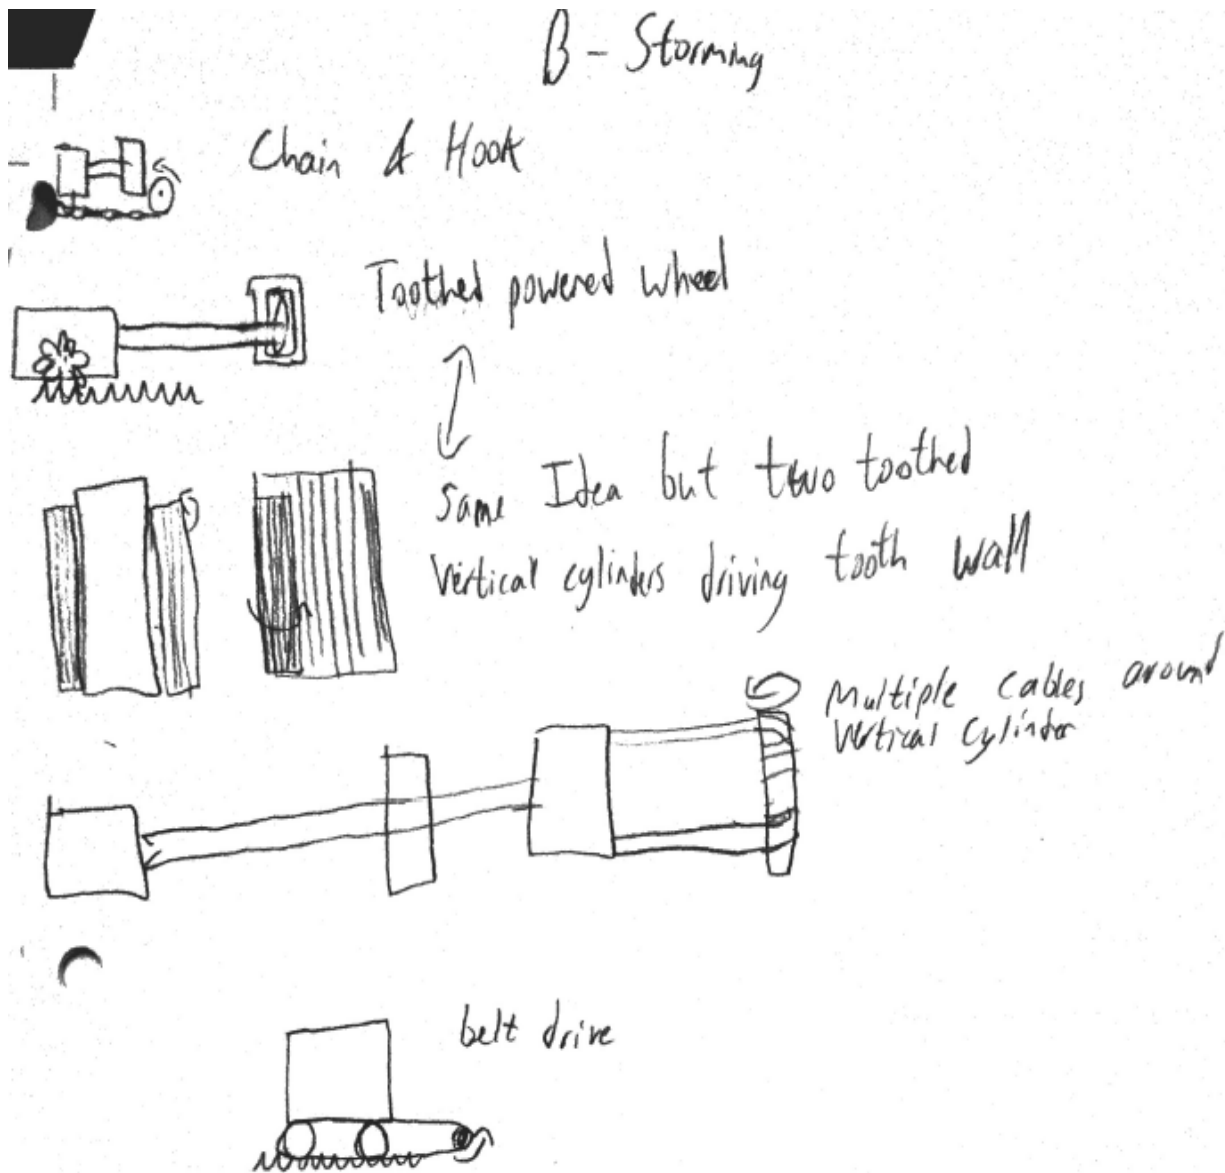 B - Storming
Chain & Hook
Toothed powered wheel
Same Idea but two toothed
Vertical cylinders driving tooth wall
Multiple cables around
Vertical Cylinder
belt drive